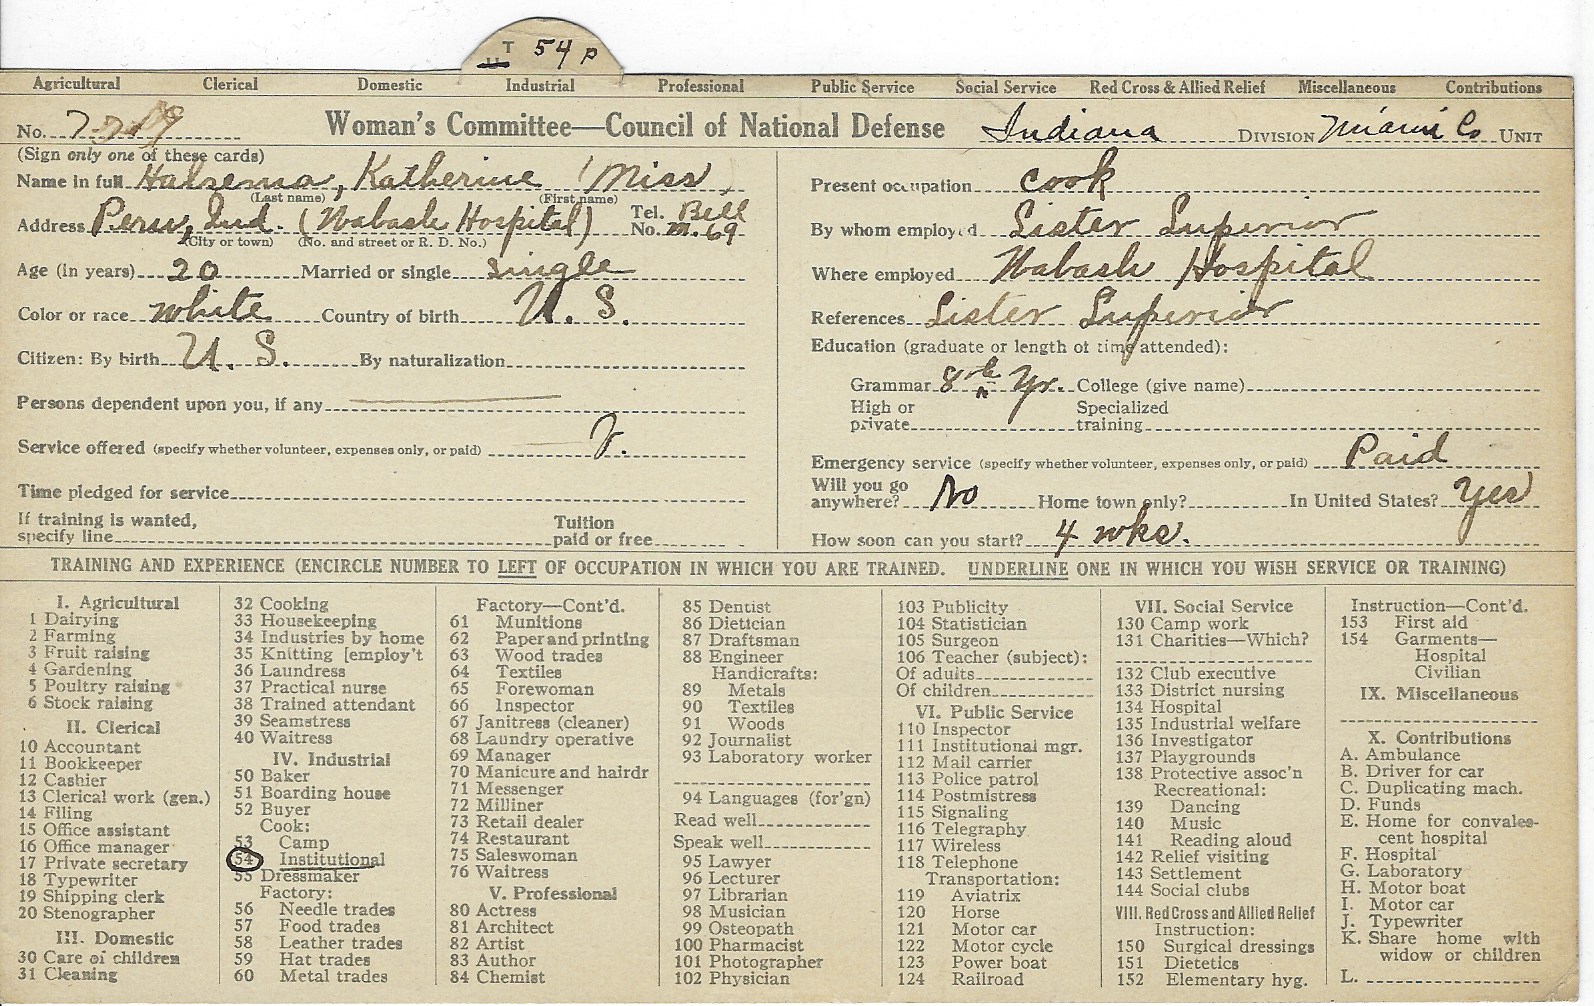 T 54 P
Agricultural Clerical Domestic Industrial Professional Public Service Social Service Red Cross & Allied Relief Miscellaneous Contributions
No. Woman's Committee—Council of National Defense Indiana DIVISION Miami Co UNIT
(Sign only one of these cards)
Name in full Halsema, Katherine (Miss
(Last name) (First name)
Address Peru, Ind. (Wabash Hospital) Tel. No. Bell M. 69
(City or town) (No. and street or R. D. No.)
Age (in years) 20 Married or single single
Color or race white Country of birth U. S.
Citizen: By birth U. S. By naturalization
Persons dependent upon you, if any
Service offered (specify whether volunteer, expenses only, or paid) V.
Time pledged for service
If training is wanted, Tuition
specify line paid or free
Present occupation cook
By whom employed Sister Superior
Where employed Wabash Hospital
References Sister Superior
Education (graduate or length of time attended):
Grammar 8th Yr. College (give name)
High or Specialized
private training
Emergency service (specify whether volunteer, expenses only, or paid) Paid
Will you go
anywhere? No Home town only? In United States? Yes
How soon can you start? 4 wks.
TRAINING AND EXPERIENCE (ENCIRCLE NUMBER TO LEFT OF OCCUPATION IN WHICH YOU ARE TRAINED. UNDERLINE ONE IN WHICH YOU WISH SERVICE OR TRAINING)
I. Agricultural
1 Dairying
2 Farming
3 Fruit raising
4 Gardening
5 Poultry raising
6 Stock raising
II. Clerical
10 Accountant
11 Bookkeeper
12 Cashier
13 Clerical work (gen.)
14 Filing
15 Office assistant
16 Office manager
17 Private secretary
18 Typewriter
19 Shipping clerk
20 Stenographer
III. Domestic
30 Care of children
31 Cleaning
32 Cooking
33 Housekeeping
34 Industries by home
35 Knitting [employ't
36 Laundress
37 Practical nurse
38 Trained attendant
39 Seamstress
40 Waitress
IV. Industrial
50 Baker
51 Boarding house
52 Buyer
Cook:
53 Camp
54 Institutional
55 Dressmaker
Factory:
56 Needle trades
57 Food trades
58 Leather trades
59 Hat trades
60 Metal trades
Factory—Cont'd.
61 Munitions
62 Paper and printing
63 Wood trades
64 Textiles
65 Forewoman
66 Inspector
67 Janitress (cleaner)
68 Laundry operative
69 Manager
70 Manicure and hairdr
71 Messenger
72 Milliner
73 Retail dealer
74 Restaurant
75 Saleswoman
76 Waitress
V. Professional
80 Actress
81 Architect
82 Artist
83 Author
84 Chemist
85 Dentist
86 Dietician
87 Draftsman
88 Engineer
Handicrafts:
89 Metals
90 Textiles
91 Woods
92 Journalist
93 Laboratory worker
94 Languages (for'gn)
Read well
Speak well
95 Lawyer
96 Lecturer
97 Librarian
98 Musician
99 Osteopath
100 Pharmacist
101 Photographer
102 Physician
103 Publicity
104 Statistician
105 Surgeon
106 Teacher (subject):
Of adults
Of children
VI. Public Service
110 Inspector
111 Institutional mgr.
112 Mail carrier
113 Police patrol
114 Postmistress
115 Signaling
116 Telegraphy
117 Wireless
118 Telephone
Transportation:
119 Aviatrix
120 Horse
121 Motor car
122 Motor cycle
123 Power boat
124 Railroad
VII. Social Service
130 Camp work
131 Charities—Which?
132 Club executive
133 District nursing
134 Hospital
135 Industrial welfare
136 Investigator
137 Playgrounds
138 Protective assoc'n
Recreational:
139 Dancing
140 Music
141 Reading aloud
142 Relief visiting
143 Settlement
144 Social clubs
VIII. Red Cross and Allied Relief
Instruction:
150 Surgical dressings
151 Dietetics
152 Elementary hyg.
Instruction—Cont'd.
153 First aid
154 Garments—
Hospital
Civilian
IX. Miscellaneous
X. Contributions
A. Ambulance
B. Driver for car
C. Duplicating mach.
D. Funds
E. Home for convales-
cent hospital
F. Hospital
G. Laboratory
H. Motor boat
I. Motor car
J. Typewriter
K. Share home with
widow or children
L.